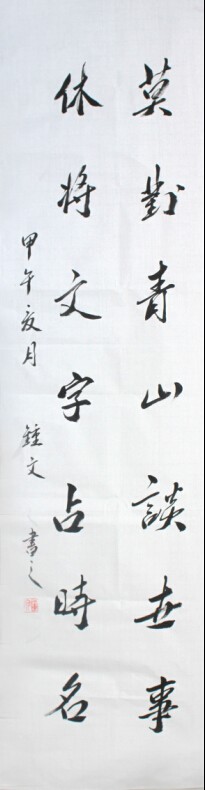 莫對青山談世事
休將文字占時名
甲午夏月
鍾文書之